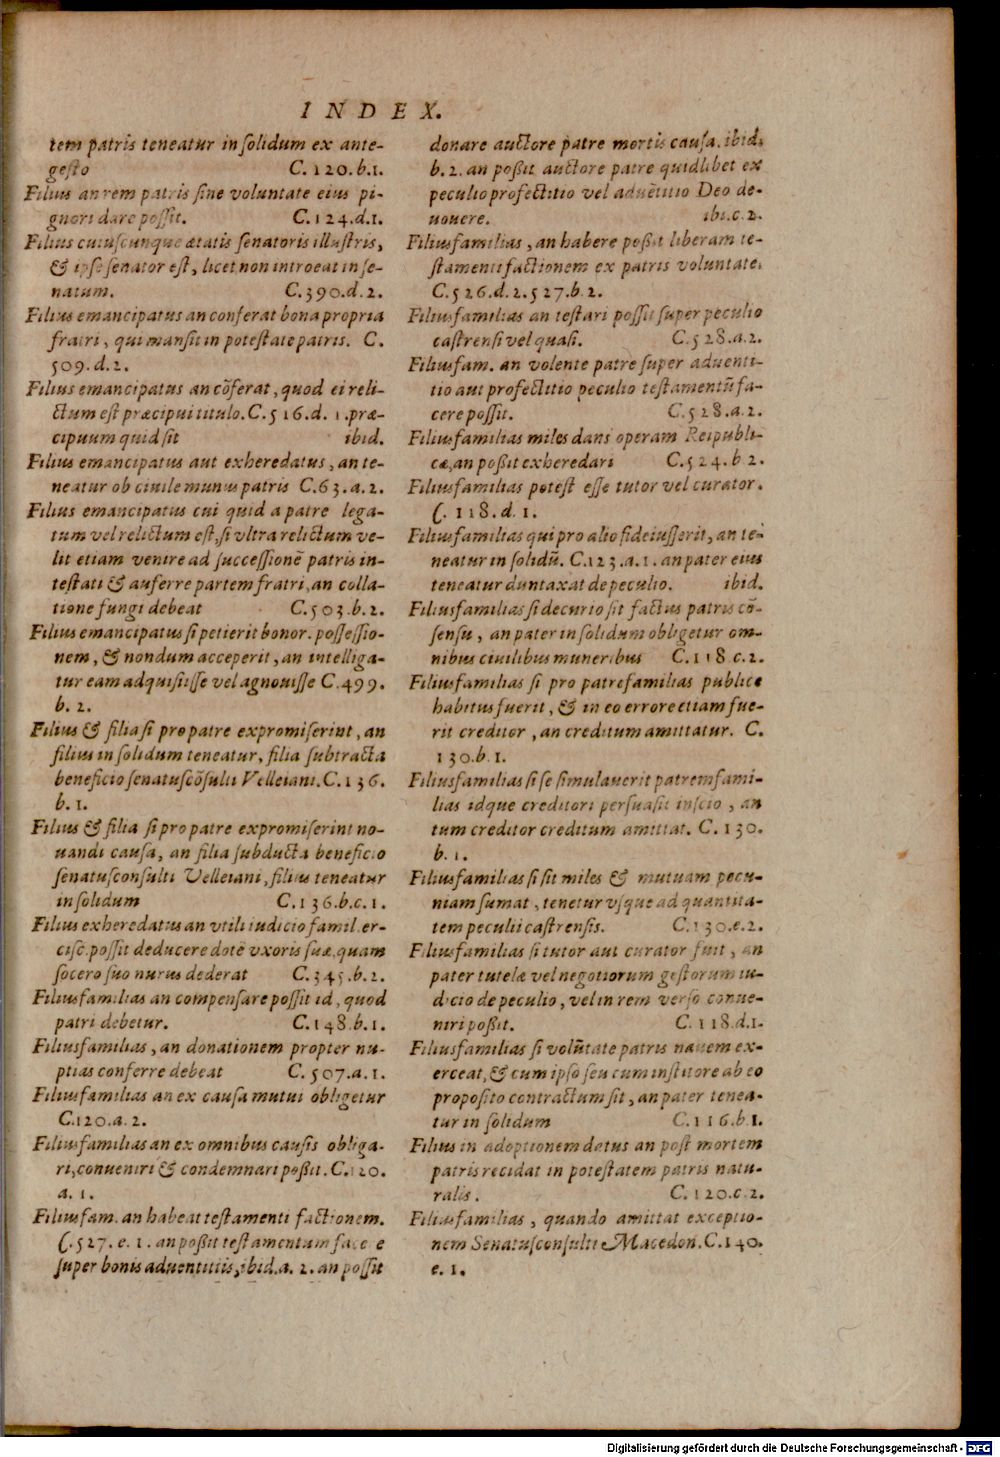 INDEX.
tem patris teneatur in solidum ex ante-
gesto C.120.b.1.
Filius an rem patris sine voluntate eius pi-
gnori dare possit. C.124.d.1.
Filius cuiuscunque ætatis senatoris illustris,
& ipse senator est, licet non introeat in se-
natum. C.390.d.2.
Filius emancipatus an conferat bona propria
fratri, qui mansit in potestate patris. C.
509.d.2.
Filius emancipatus an cõferat, quod ei reli-
ctum est præcipui titulo. C.516.d.1.præ-
cipuum quid sit ibid.
Filius emancipatus aut exheredatus, an te-
neatur ob ciuile munus patris C.63.a.2.
Filius emancipatus cui quid a patre lega-
tum vel relictum est, si vltra relictum ve-
lit etiam venire ad successionẽ patris in-
testati & auferre partem fratri, an colla-
tione fungi debeat C.503.b.2.
Filius emancipatus si petierit bonor. possessio-
nem, & nondum acceperit, an intelliga-
tur eam adquisiisse vel agnouisse C.499.
b.2.
Filius & filia si pro patre expromiserint, an
filius in solidum teneatur, filia subtracta
beneficio senatuscõsulti Velleiani. C.136.
b.1.
Filius & filia si pro patre expromiserint no-
uandi causa, an filia subducta beneficio
senatusconsulti Velleiani, filius teneatur
in solidum C.136.b.c.1.
Filius exheredatus an vtili iudicio famil.er-
cisc.possit deducere dotẽ vxoris suæ, quam
socero suo nurus dederat C.345.b.2.
Filiusfamilias an compensare possit id, quod
patri debetur. C.148.b.1.
Filiusfamilias, an donationem propter nu-
ptias conferre debeat C.507.a.1.
Filiusfamilias an ex causa mutui obligetur
C.120.a.2.
Filiusfamilias an ex omnibus causis obliga-
ri, conueniri & condemnari possit. C.120.
a.1.
Filiusfam. an habeat testamenti factionem.
C.527.e.1. an possit testamentum face e
super bonis aduentitiis, ibid.a.2. an possit
donare auctore patre mortis causa. ibid.
b.2. an possit auctore patre quidlibet ex
peculio profectitio vel aduẽtitio Deo de-
uouere. ibi.c.2.
Filiusfamilias, an habere possit liberam te-
stamenti factionem ex patris voluntate.
C.526.d.2.527.b.2.
Filiusfamilias an testari possit super peculio
castrensi vel quasi. C.528.a.2.
Filiusfam. an volente patre super aduenti-
tio aut profectitio peculio testamentũ fa-
cere possit. C.528.a.2.
Filiusfamilias miles dans operam Reipubli-
cæ, an possit exheredari C.524.b 2.
Filiusfamilias potest esse tutor vel curator.
C.118.d.1.
Filiusfamilias qui pro alio fideiusserit, an te-
neatur in solidũ. C.123.a.1. an pater eius
teneatur duntaxat de peculio. ibid.
Filiusfamilias si decurio sit factus patris cõ-
sensu, an pater in solidum obligetur om-
nibus ciuilibus muneribus C.118.c.2.
Filiusfamilias si pro patrefamilias publice
habitus fuerit, & in eo errore etiam fue-
rit creditor, an creditum amittatur. C.
130.b.1.
Filiusfamilias si se simulauerit patremfami-
lias idque creditori persuasit inscio, an
tum creditor creditum amittat. C.130.
b.1.
Filiusfamilias si sit miles & mutuam pecu-
niam sumat, tenetur vsque ad quantita-
tem peculii castrensis. C.130.e.2.
Filiusfamilias si tutor aut curator fuit, an
pater tutelæ vel negotiorum gestorum iu-
dicio de peculio, vel in rem verso conue-
niri possit. C.118.d.1.
Filiusfamilias si volũtate patris nauem ex-
erceat, & cum ipso seu cum institore ab eo
proposito contractum sit, an pater tenea-
tur in solidum C.116.b.1.
Filius in adoptionem datus an post mortem
patris recidat in potestatem patris natu-
ralis. C.120.c.2.
Filiusfamilias, quando amittat exceptio-
nem Senatusconsulti Macedoñ. C.140.
e.1.
Digitalisierung gefördert durch die Deutsche Forschungsgemeinschaft - DFG